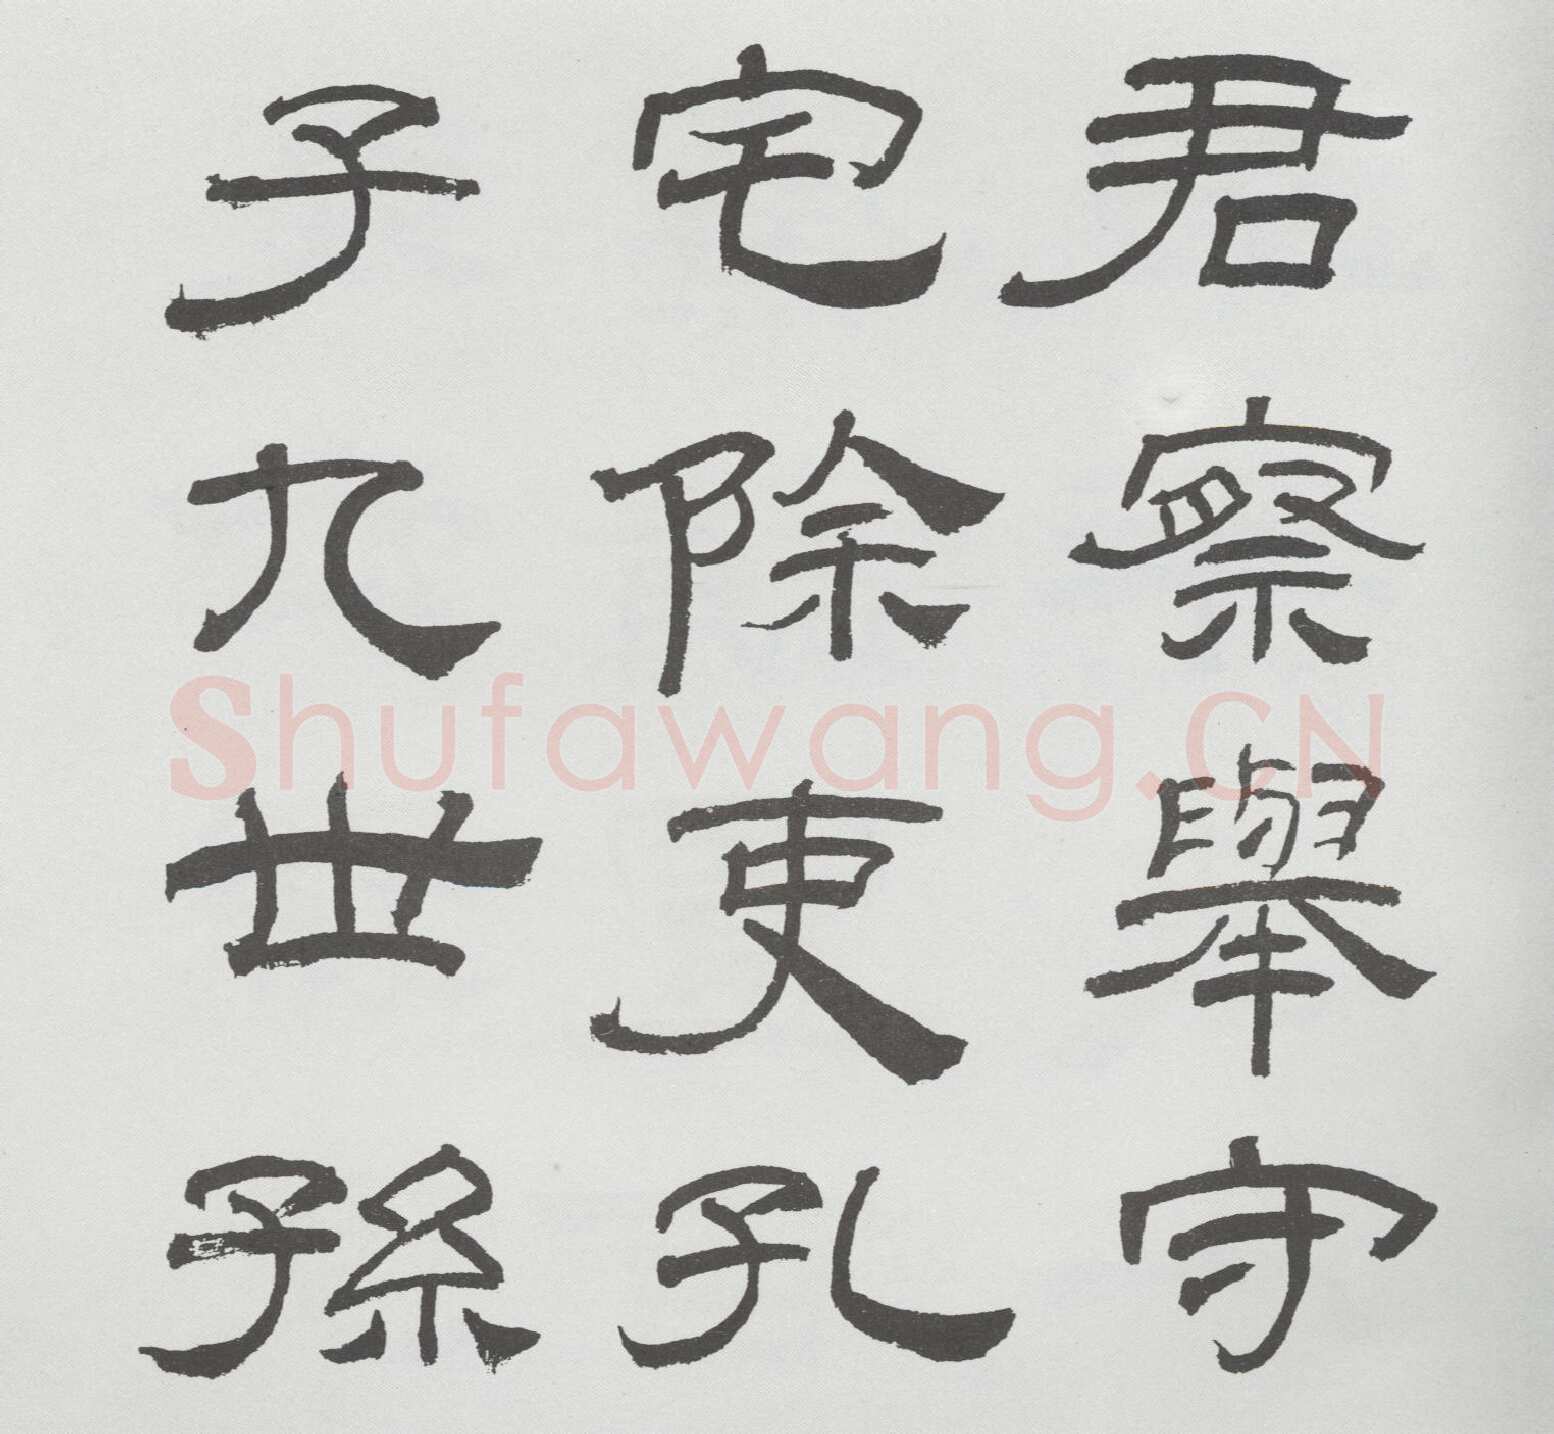 君察舉守
宅除吏孔
子九世孫
Shufawang.CN